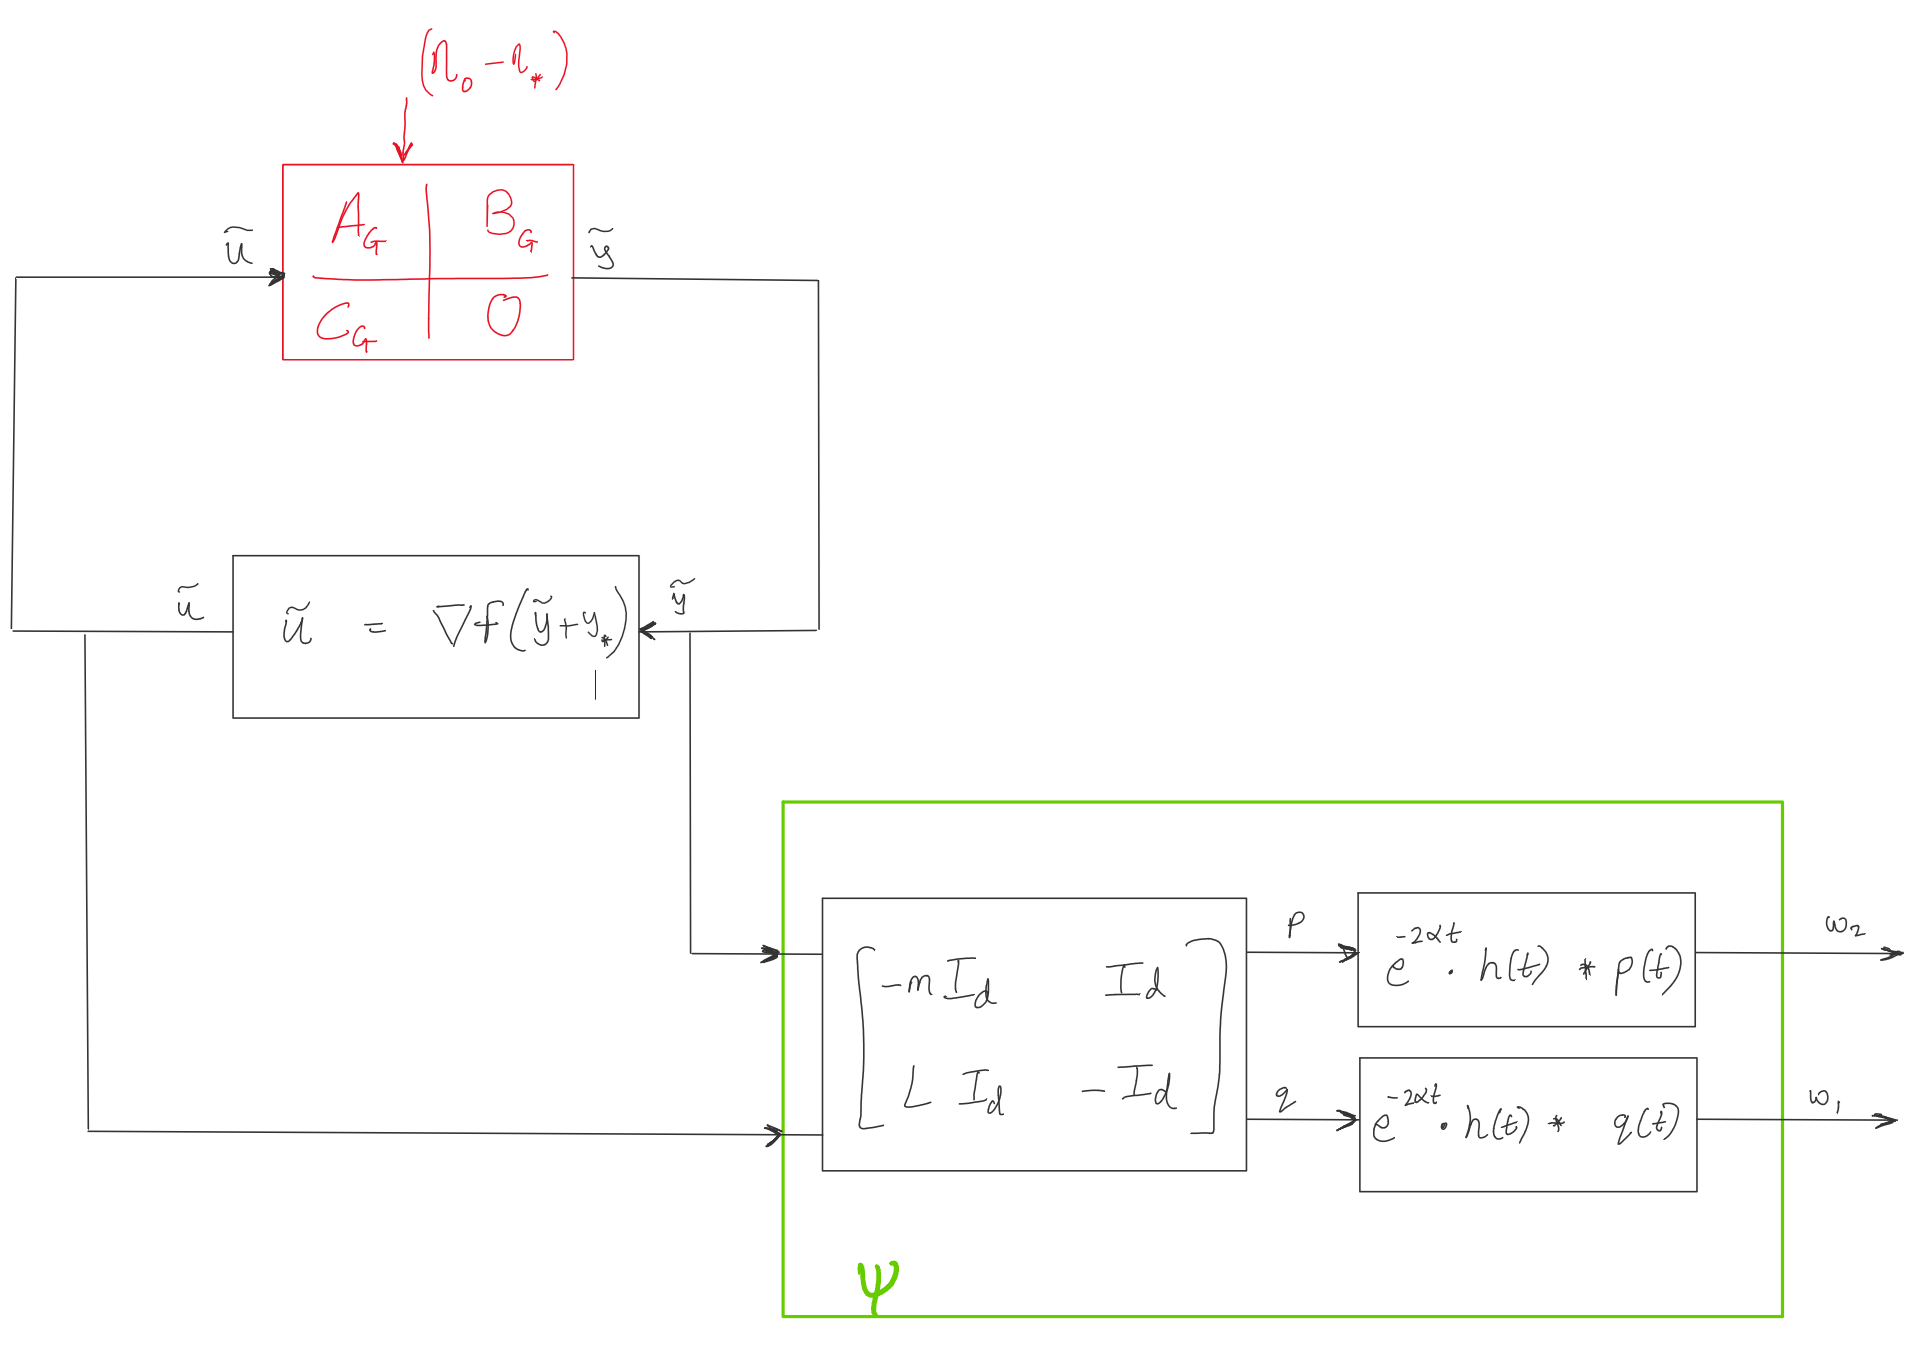 (η₀ − η_*)
A_G B_G
C_G 0
ũ
ỹ
ũ
ũ = ∇f(ỹ+y_*)
ỹ
-mI_d I_d
L I_d -I_d
p
e^{-2αt} · h(t) * p(t)
ω₂
q
e^{-2αt} · h(t) * q(t)
ω₁
ψ